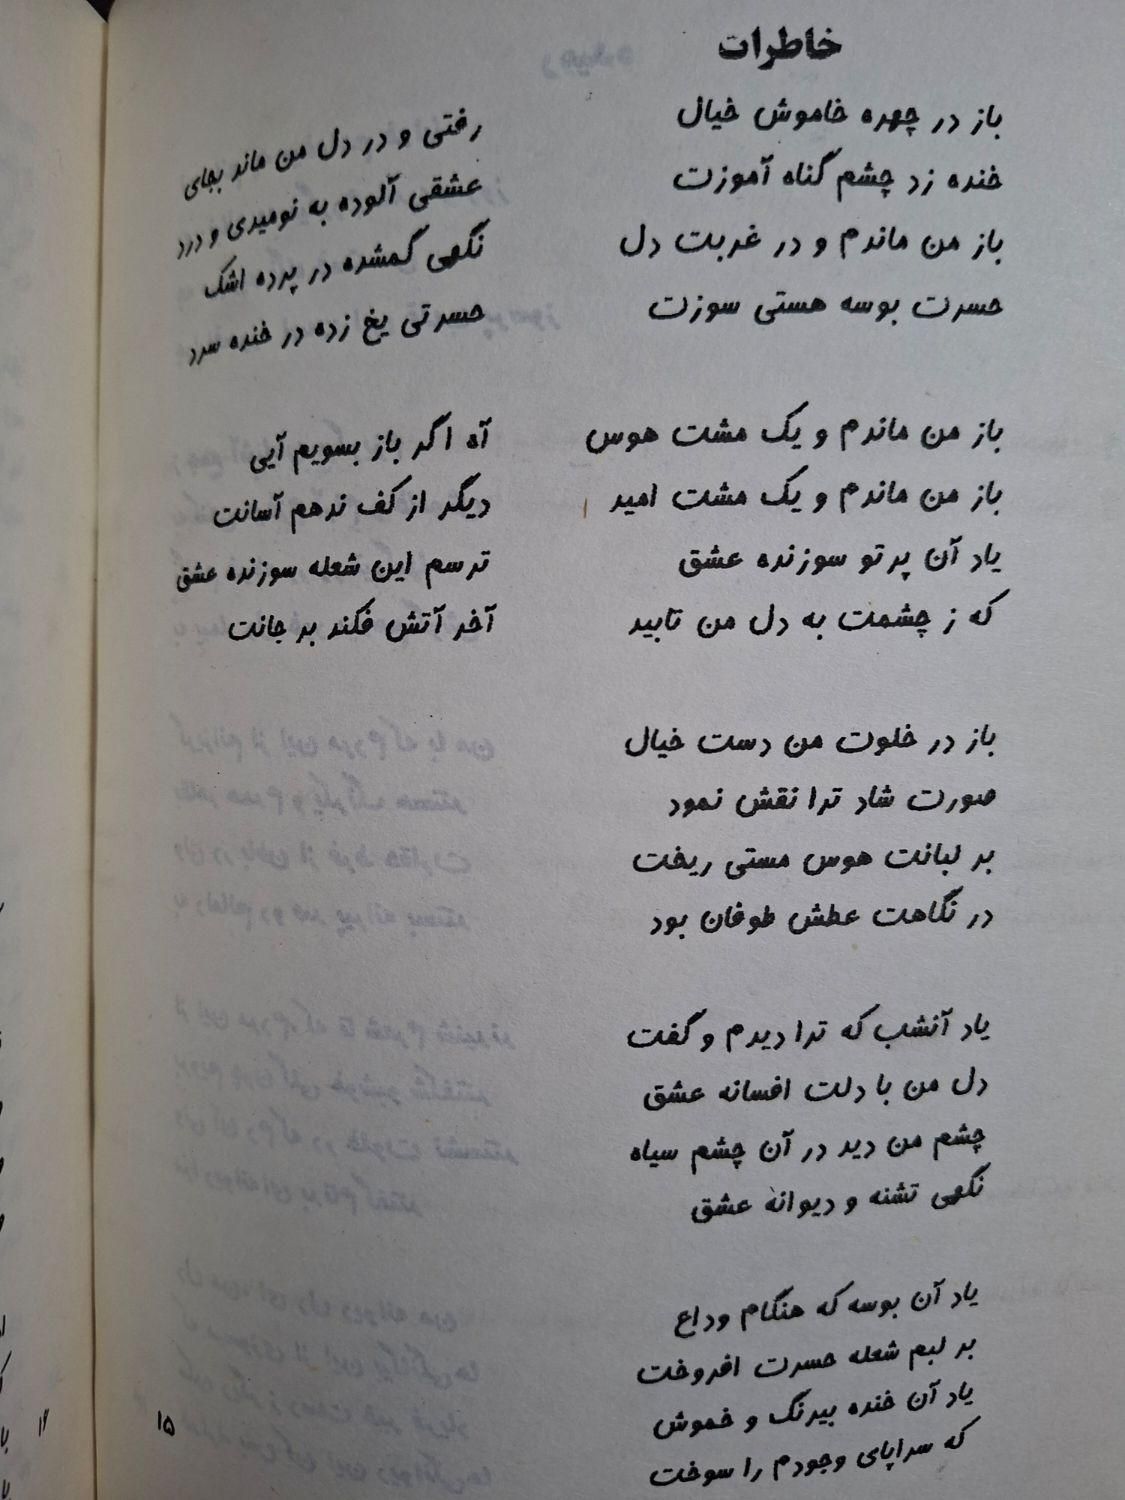 خاطرات
باز در چهره خاموش خیال
خنده زد چشم گناه آموزت
باز من ماندم و در غربت دل
حسرت بوسه هستی سوزت
باز من ماندم و یک مشت هوس
باز من ماندم و یک مشت امید
یاد آن پرتو سوزنده عشق
که ز چشمت به دل من تابید
باز در خلوت من دست خیال
صورت شاد ترا نقش نمود
بر لبانت هوس مستی ریخت
در نگاهت عطش طوفان بود
یاد آنشب که ترا دیدم و گفت
دل من با دلت افسانه عشق
چشم من دید در آن چشم سیاه
نگهی تشنه و دیوانهٔ عشق
یاد آن بوسه که هنگام وداع
بر لبم شعله حسرت افروخت
یاد آن خنده بیرنگ و خموش
که سراپای وجودم را سوخت
رفتی و در دل من ماند بجای
عشقی آلوده به نومیدی و درد
نگهی گمشده در پرده اشک
حسرتی یخ زده در خنده سرد
آه اگر باز بسویم آیی
دیگر از کف ندهم آسانت
ترسم این شعله سوزنده عشق
آخر آتش فکند بر جانت
۱۵
۱۴